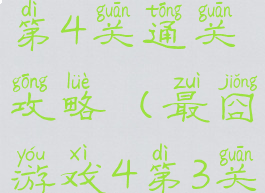 dì guān tōng guān
第4关通关
gōng lüè zuì jiǒng
攻略(最囧
yóu xì dì guān
游戏4第3关